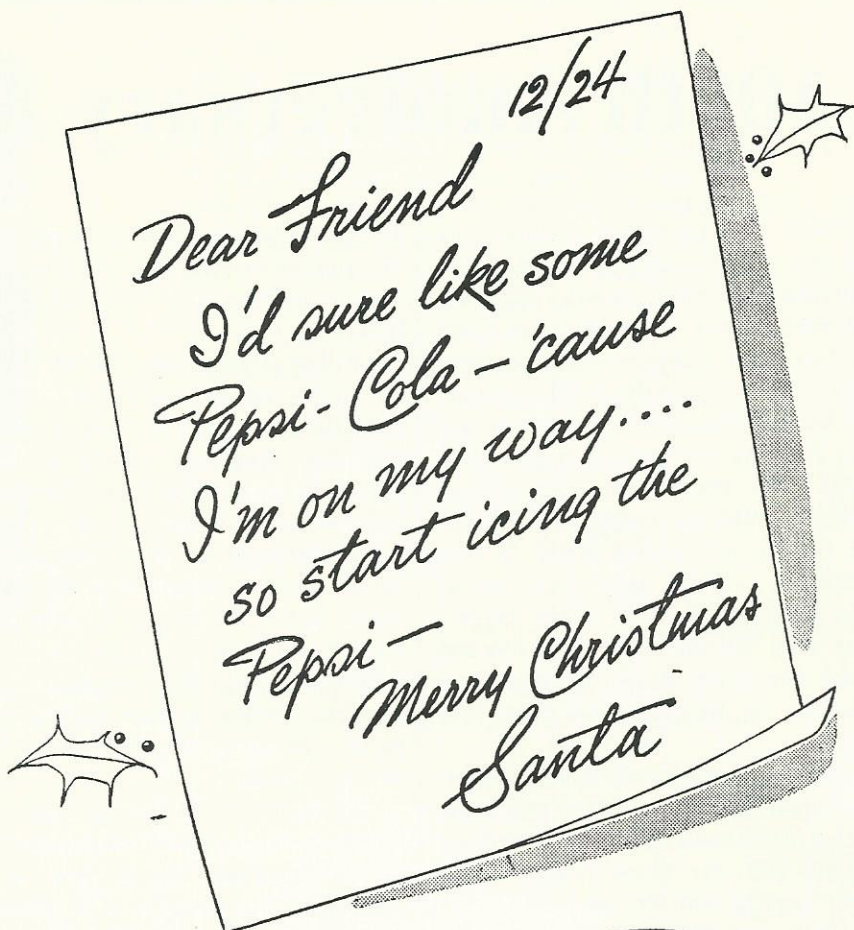 12/24
Dear Friend
I'd sure like some
Pepsi-Cola — 'cause
I'm on my way....
so start icing the
Pepsi —
Merry Christmas
Santa